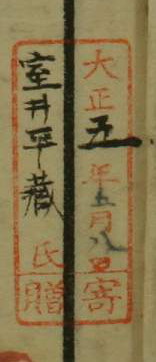 大正五年五月八日寄
室井平藏氏贈